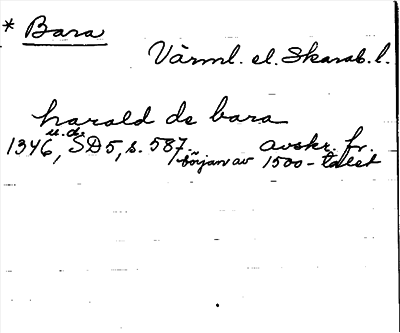 * Bara
Värml. el. Skarab. l.
harald de bara
1346, u.d. SD5, s. 587. avskr. fr.
början av 1500-talet